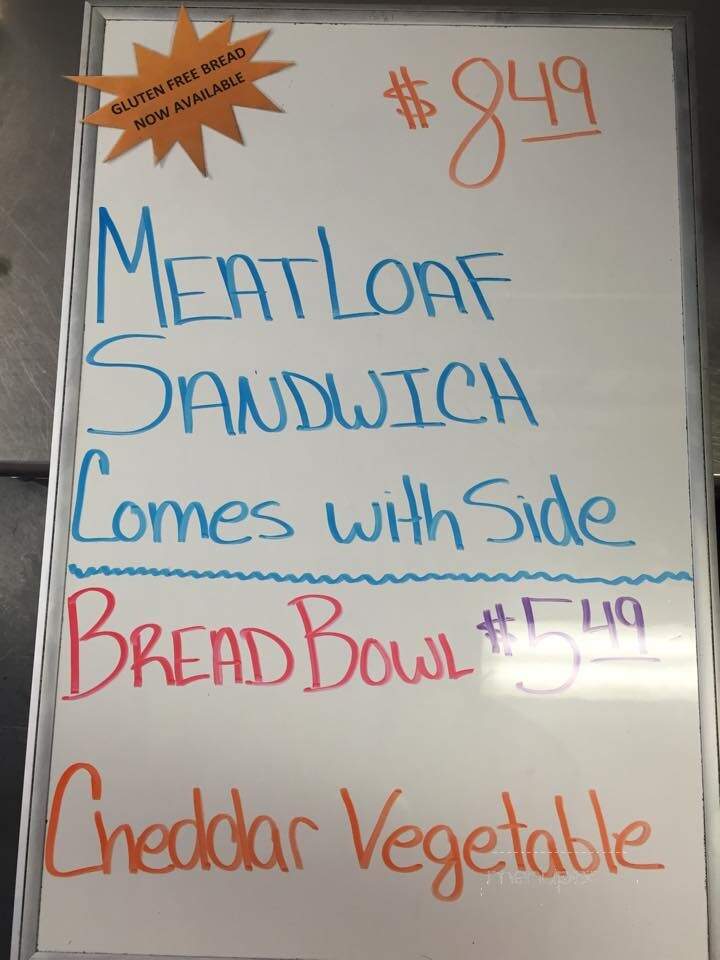 GLUTEN FREE BREAD
NOW AVAILABLE
$8.49
MEATLOAF
SANDWICH
Comes with Side
BREAD BOWL $5.49
Cheddar Vegetable